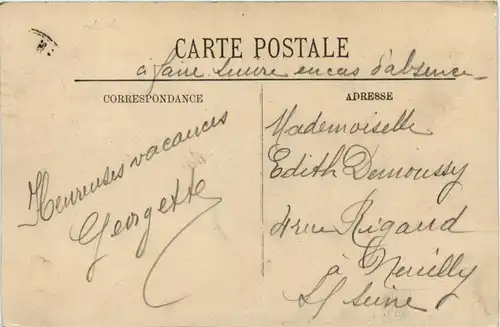 CARTE POSTALE
à faire suivre en cas d'absence
CORRESPONDANCE
Heureuses vacances
Georgette
ADRESSE
Mademoiselle
Edith Demoussy
4 rue Rigaud
à Neuilly
s/ Seine